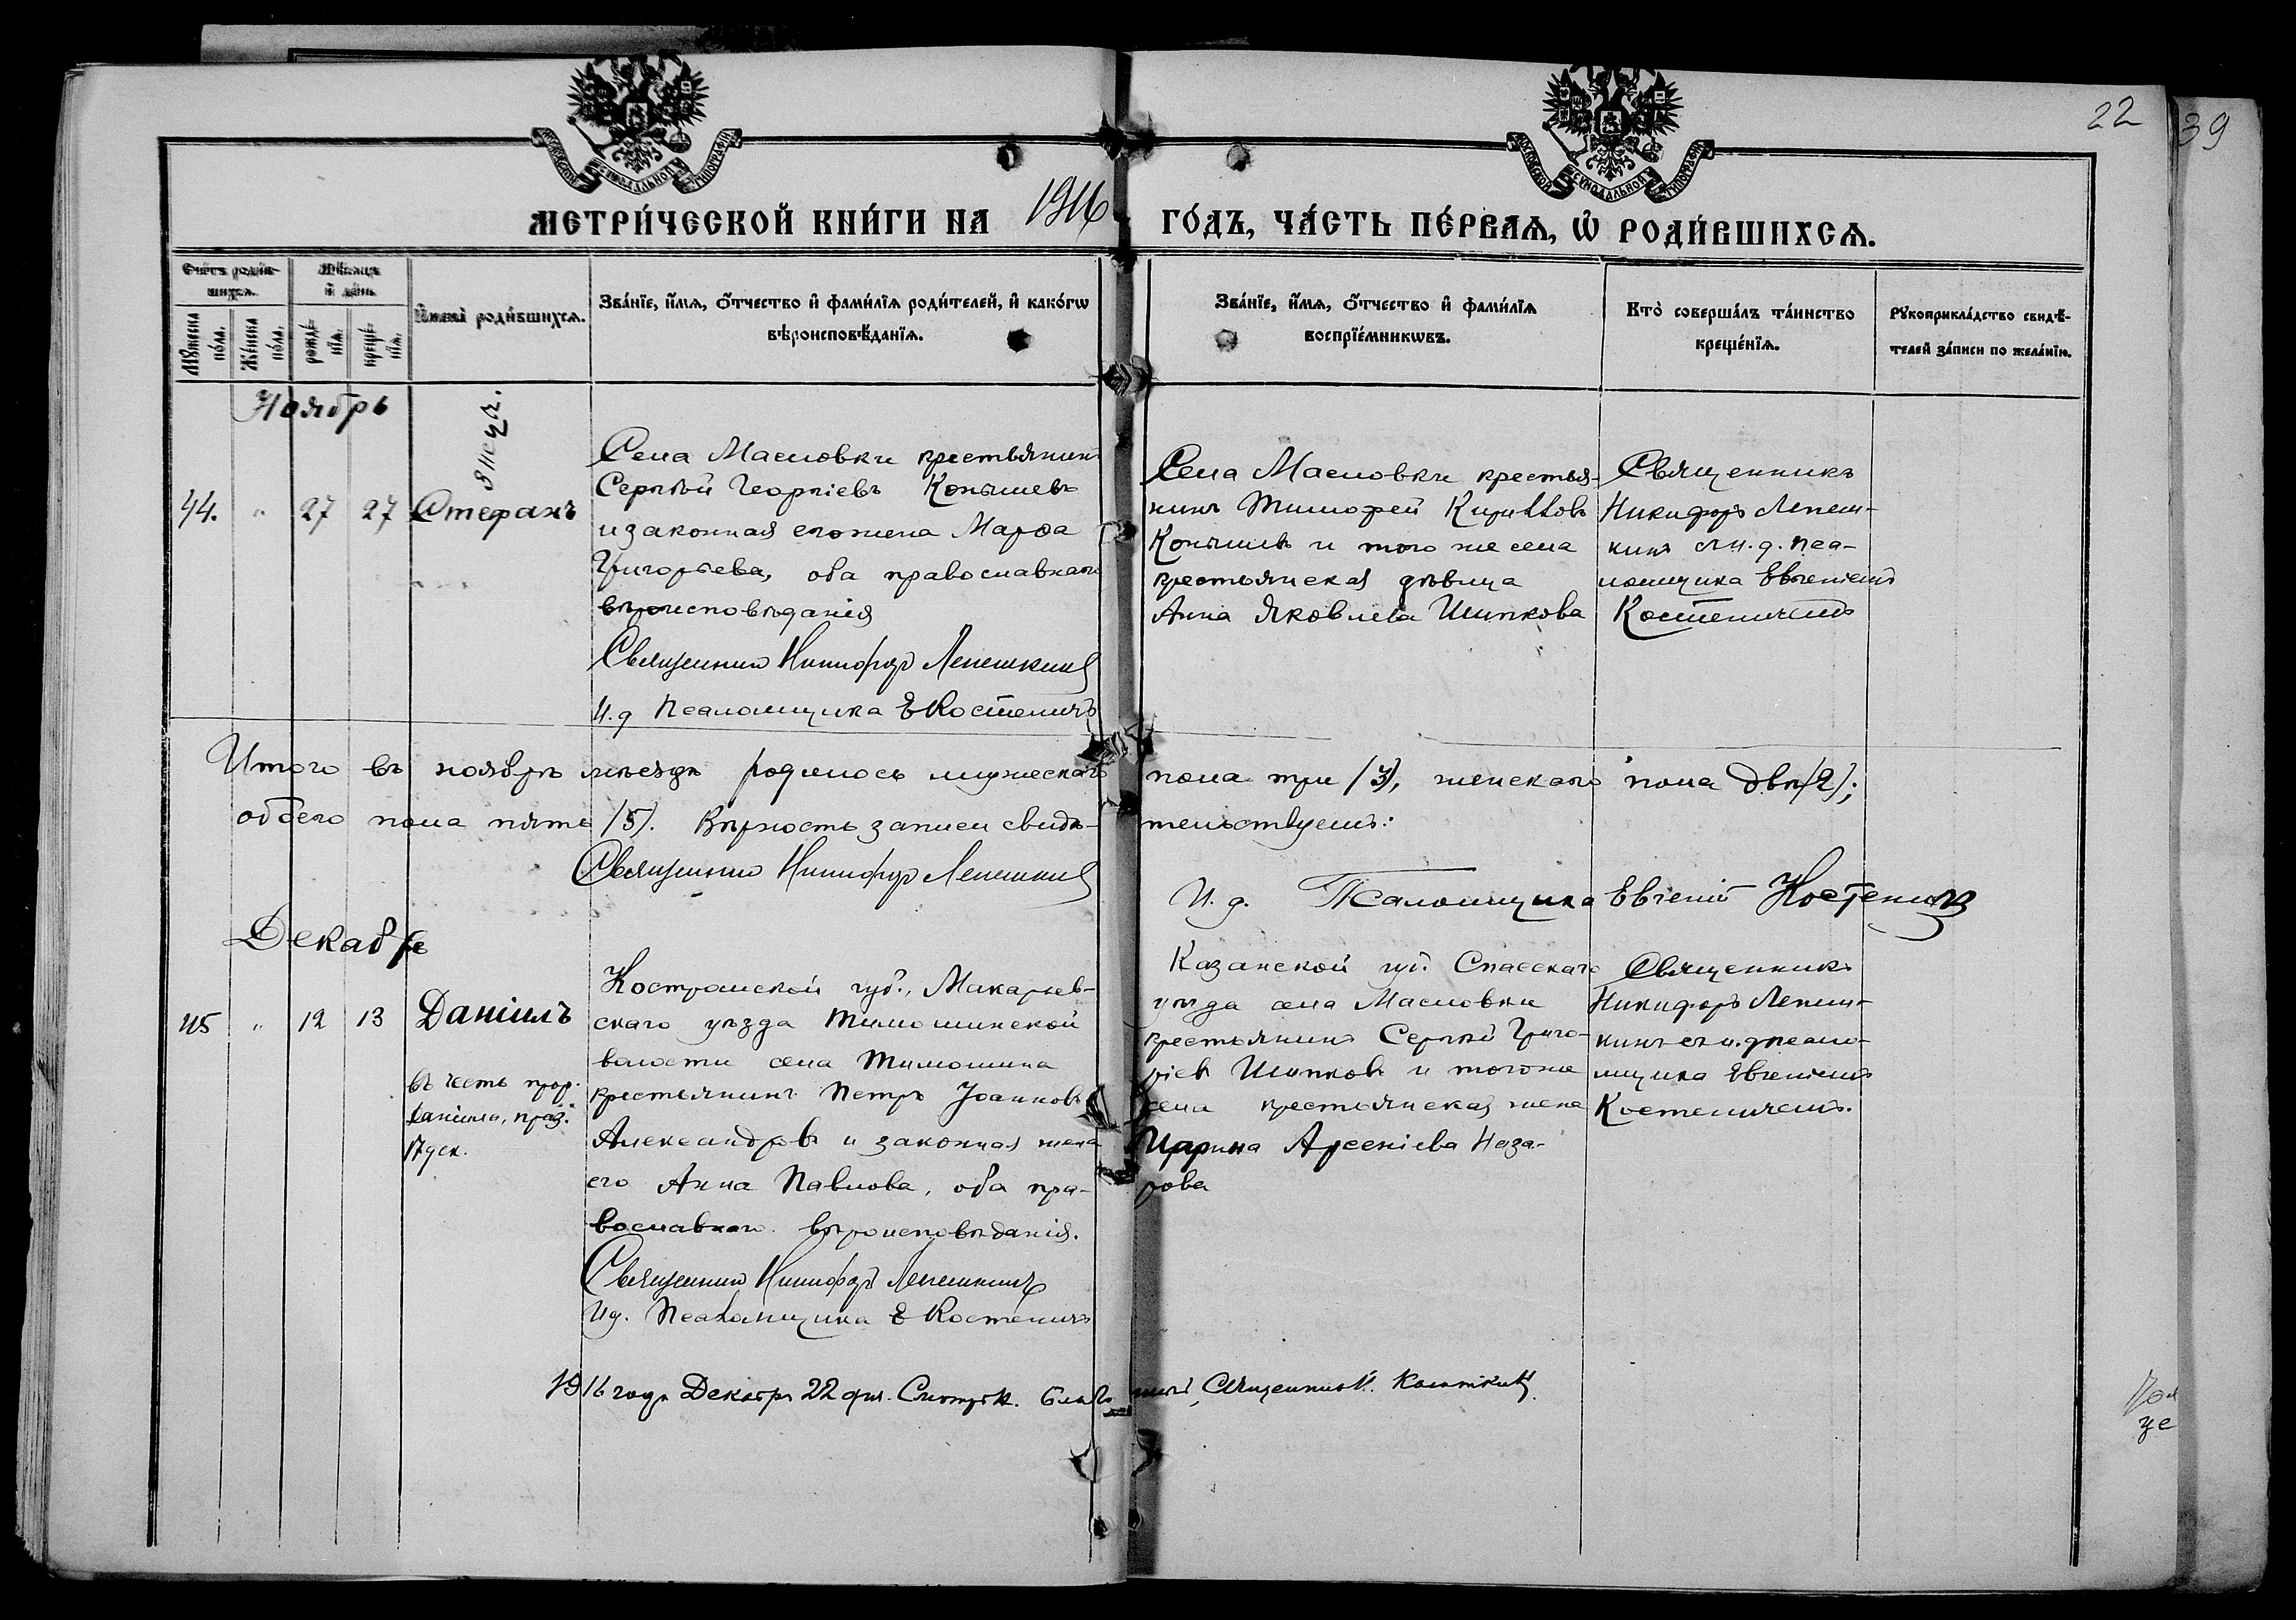 22
39
МОСКОВСКОЙ СѴНОДАЛЬНОЙ ТИПОГРАФІИ
МОСКОВСКОЙ СѴНОДАЛЬНОЙ ТИПОГРАФІИ
МЕТРИ́ЧЕСКОЙ КНИ́ГИ НА 1916 ГО́ДЪ, ЧА́СТЬ ПЕ́РВАѦ, Ѡ҆ РОДИ́ВШИХСѦ.
Сче́тъ роди́в-
шихсѧ.
Мѣ́сѧцъ
и҆ де́нь
Мꙋ́жеска
по́ла.
Же́нска
по́ла.
рожде́-
нїѧ.
креще́-
нїѧ.
И҆мена̀ роди́вшихсѧ.
Зва́нїе, и҆́мѧ, ѻ҆́тчество и҆ фами́лїѧ роди́телей, и҆ како́гѡ
вѣроисповѣ́данїѧ.
Зва́нїе, и҆́мѧ, ѻ҆́тчество и҆ фами́лїѧ
воспрїе́мникѡвъ.
Кто̀ соверша́лъ та́инство
креще́нїѧ.
Рꙋкоприкла́дство свидѣ́-
телей за́писи по жела́нїю.
Ноябрь
44.
"
27
27
Стефанъ
Села Масловки крестьянинъ
Сергѣй Георгіевъ Конышевъ
и законная его жена Марѳа
Григорьева, оба православнаго
вѣроисповѣданія
Священникъ Никифоръ Лепешкинъ
И.д Псаломщика Е Костеничъ
Села Масловки крестья-
нинъ Тимофей Кирилловъ
Конышевъ и того же села
крестьянская дѣвица
Анна Яковлева Шипкова
Священникъ
Никифоръ Лепеш-
кинъ съ и.д. пса-
ломщика Евгеніемъ
Костеничемъ
Итого въ ноябрѣ мѣсяцѣ родилось мужескаго пола три (3), женскаго пола двѣ (2);
обоего пола пять (5). Вѣрность записи свидѣ- тельствуемъ:
Священникъ Никифоръ Лепешкинъ
И.д. Псаломщика Евгеній Костеничъ
Декабрь
45
"
12
13
Даніилъ
въ честь прор.
Даніила, праз.
17 дек.
Костромской губ., Макарьев-
скаго уѣзда Тимошинской
волости села Тимошина
крестьянинъ Петръ Іоанновъ
Александровъ и законная жена
его Анна Павлова, оба пра-
вославнаго вѣроисповѣданія.
Священникъ Никифоръ Лепешкинъ
И.д. Псаломщика Е Костеничъ
Казанской губ. Спасскаго
уѣзда села Масловки
крестьянинъ Сергѣй Григо-
ріевъ Шипковъ и того же
села крестьянская жена
Ирина Арсеніева Наза-
рова
Священникъ
Никифоръ Лепеш-
кинъ съ и.д псало-
мщика Евгеніемъ
Костеничемъ.
1916 года Декабря 22 дня. Священникъ